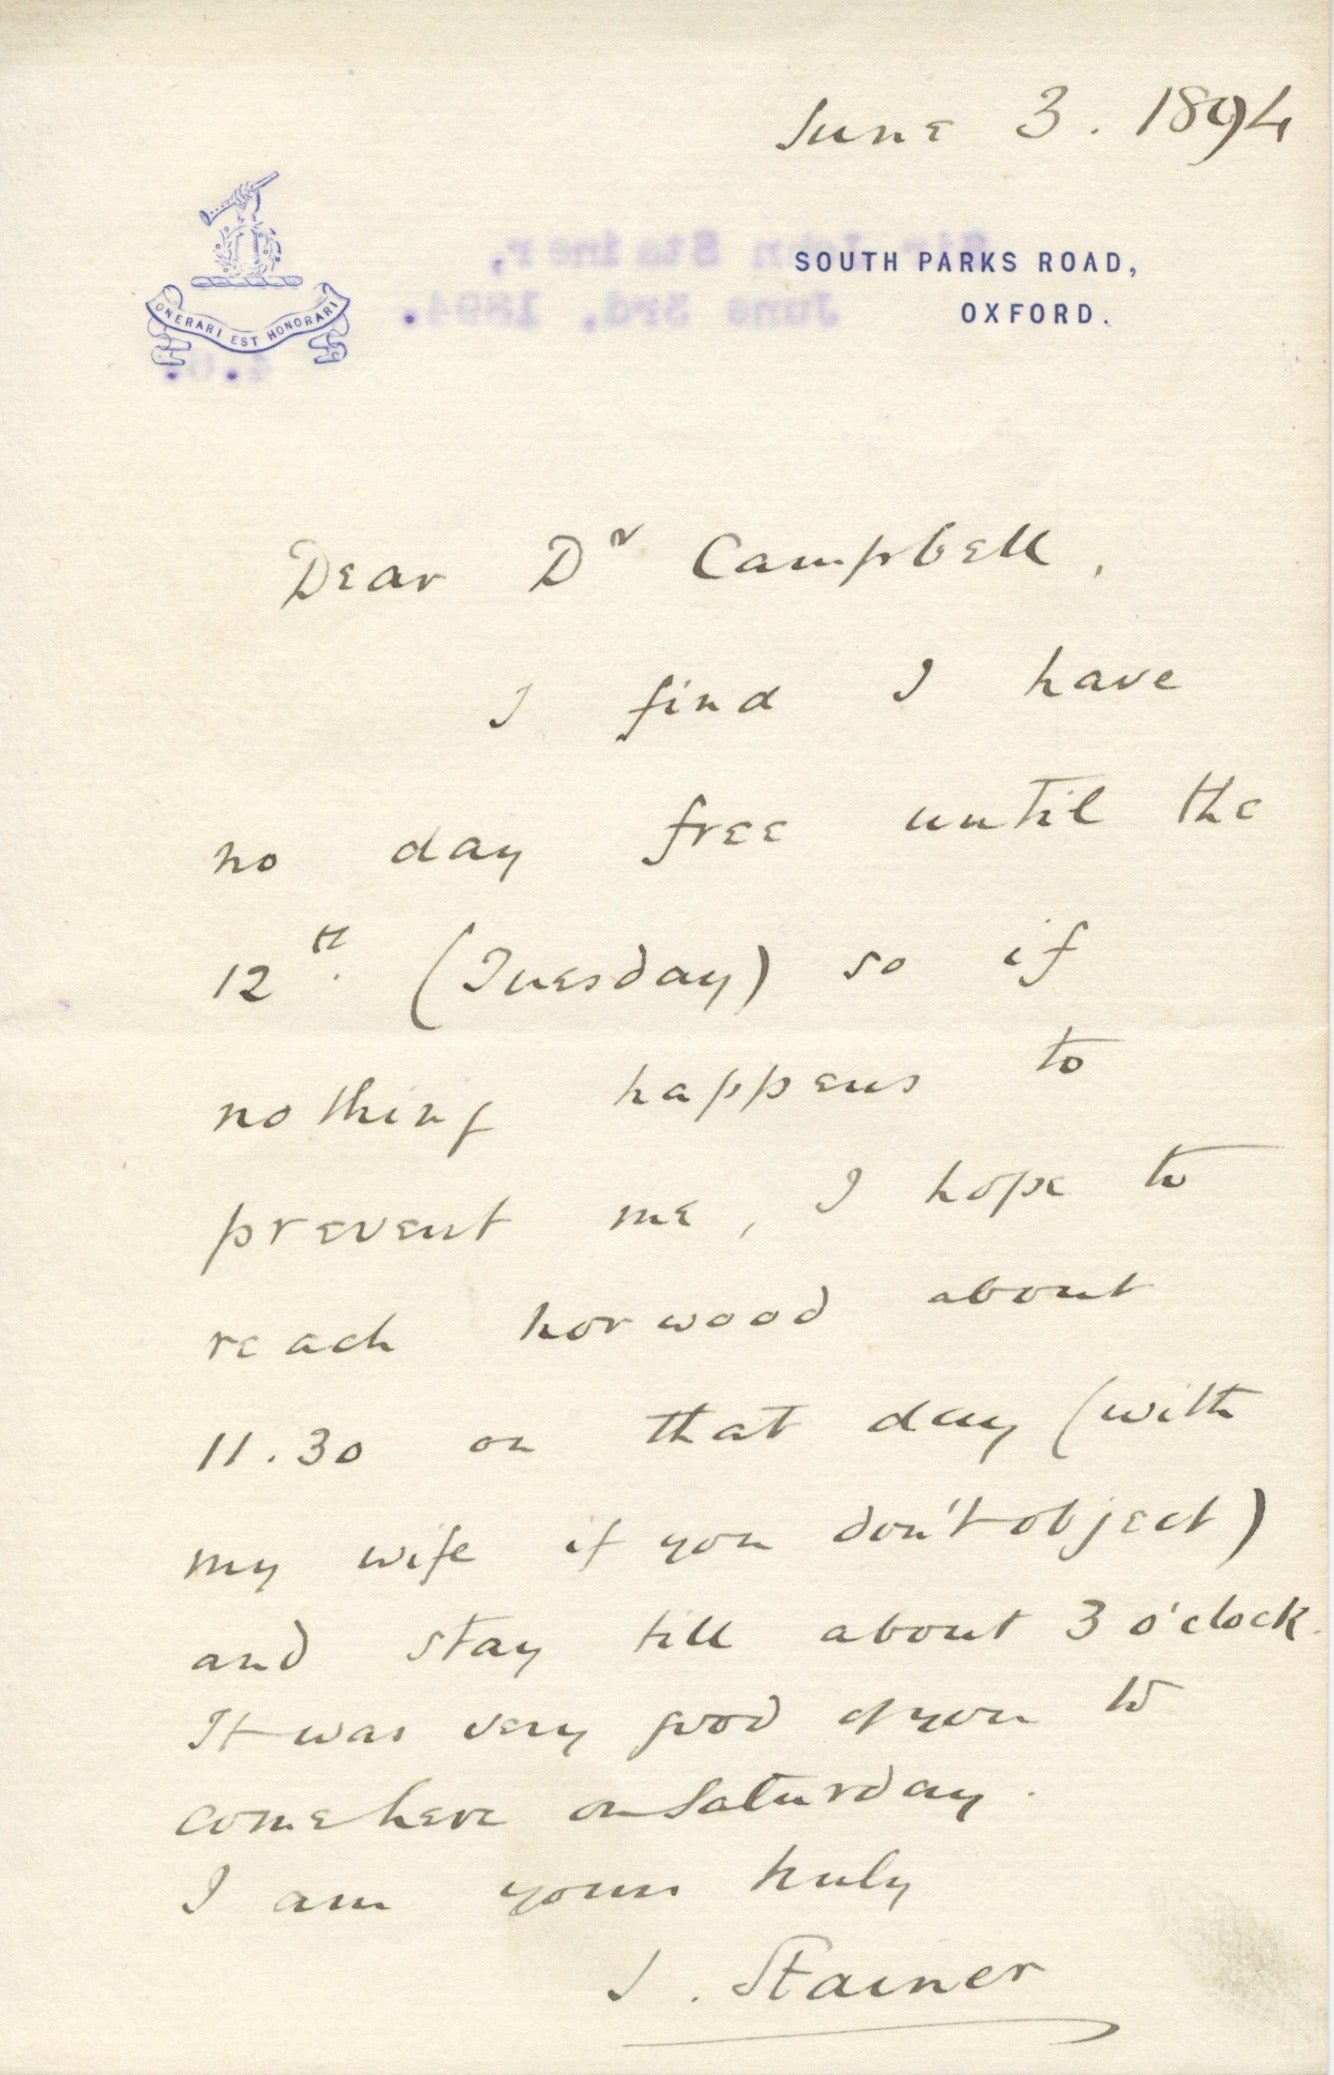 June 3. 1894
ONERARI EST HONORARI
SOUTH PARKS ROAD,
OXFORD.
Sir John Stainer,
June 3rd, 1894.
Dear Dr Campbell,
I find I have
no day free until the
12th. (Tuesday) so if
nothing happens to
prevent me, I hope to
reach Norwood about
11.30 on that day (with
my wife if you don't object)
and stay till about 3 o'clock.
It was very good of you to
come here on Saturday.
I am yours truly
J. Stainer